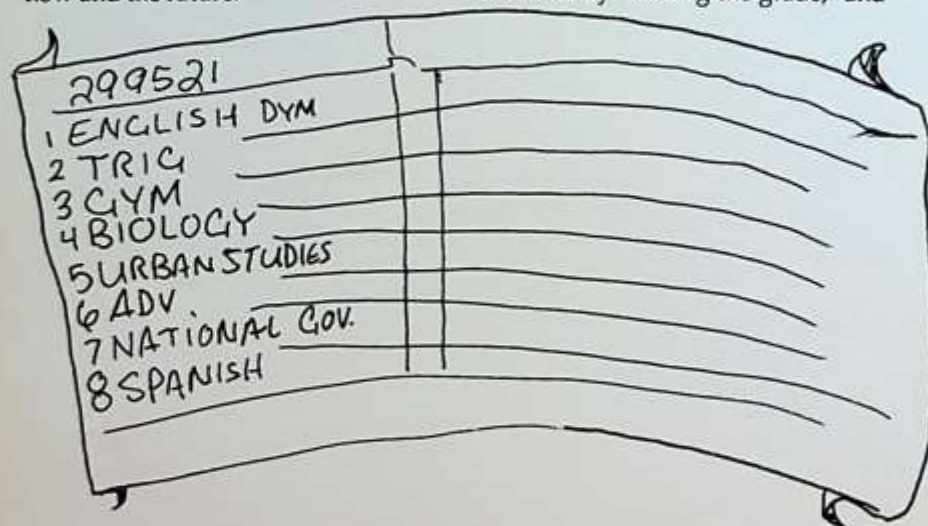 299521
1 ENGLISH DYM
2 TRIG
3 GYM
4 BIOLOGY
5 URBAN STUDIES
6 ADV
7 NATIONAL GOV.
8 SPANISH